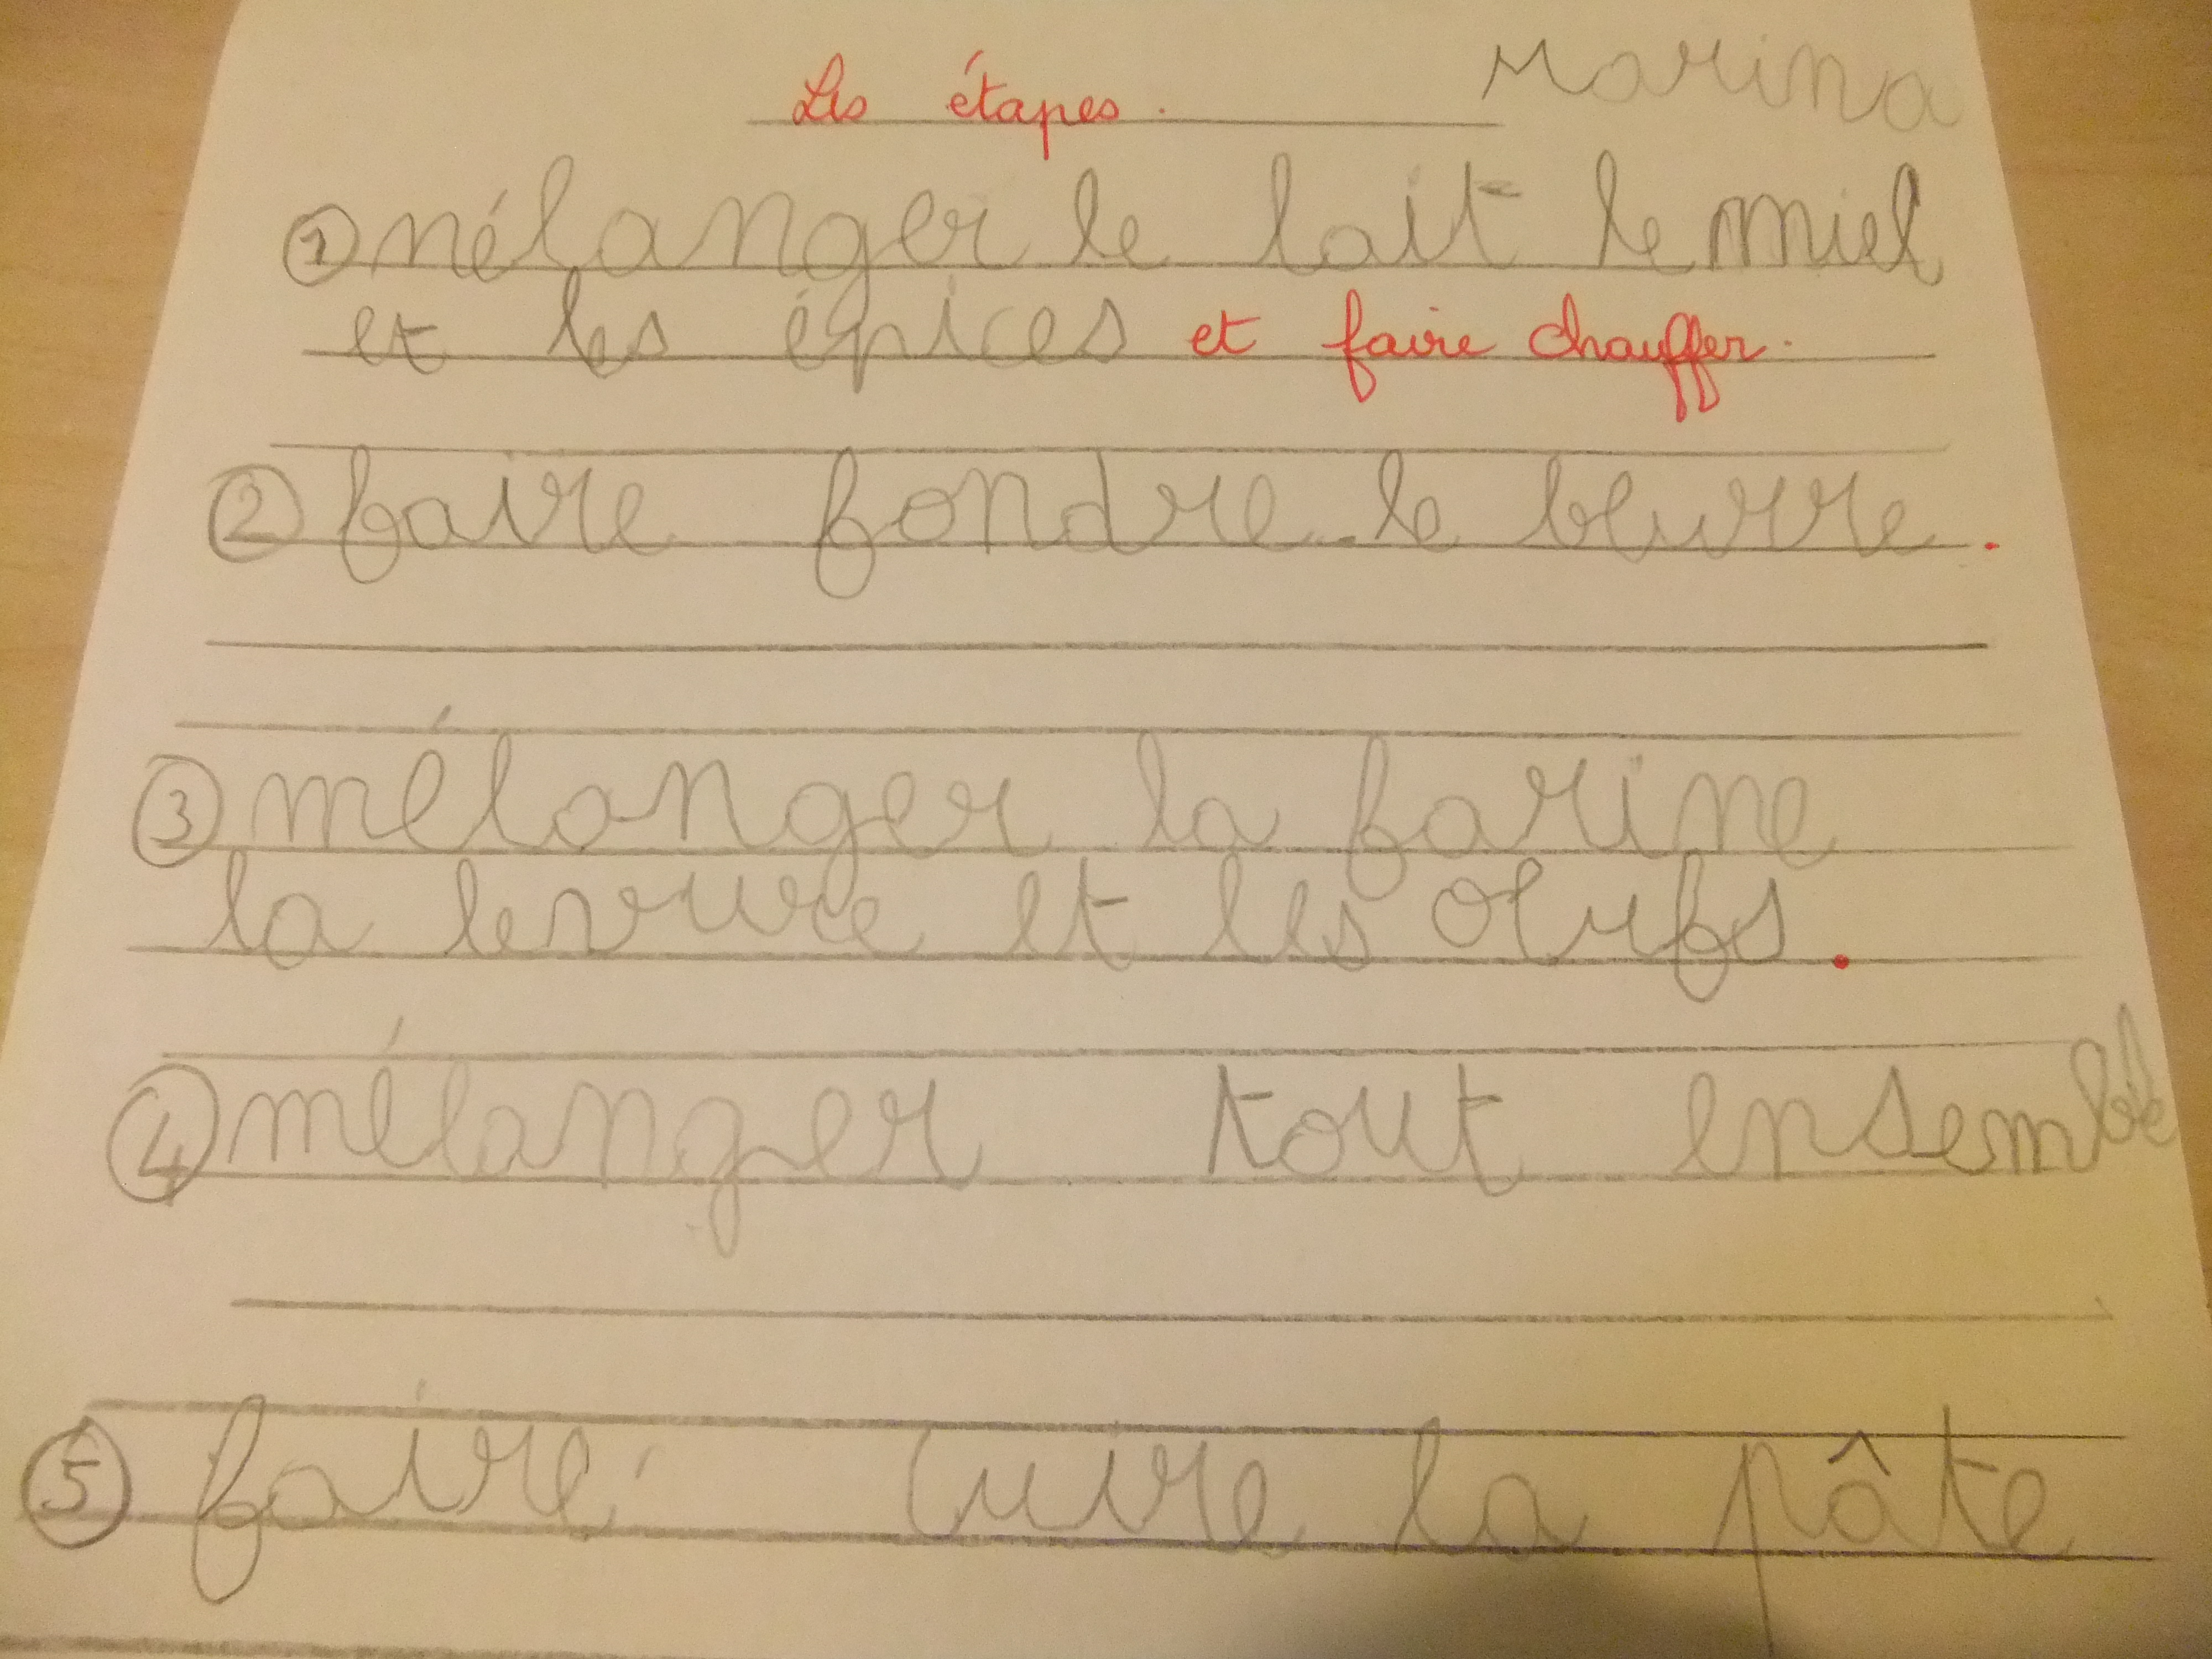 Les étapes. Marina
① mélanger le lait le miel
et les épices et faire chauffer.
② faire fondre le beurre.
③ mélanger la farine
la levure et les oeufs.
④ mélanger tout ensemble
⑤ faire cuire la pâte